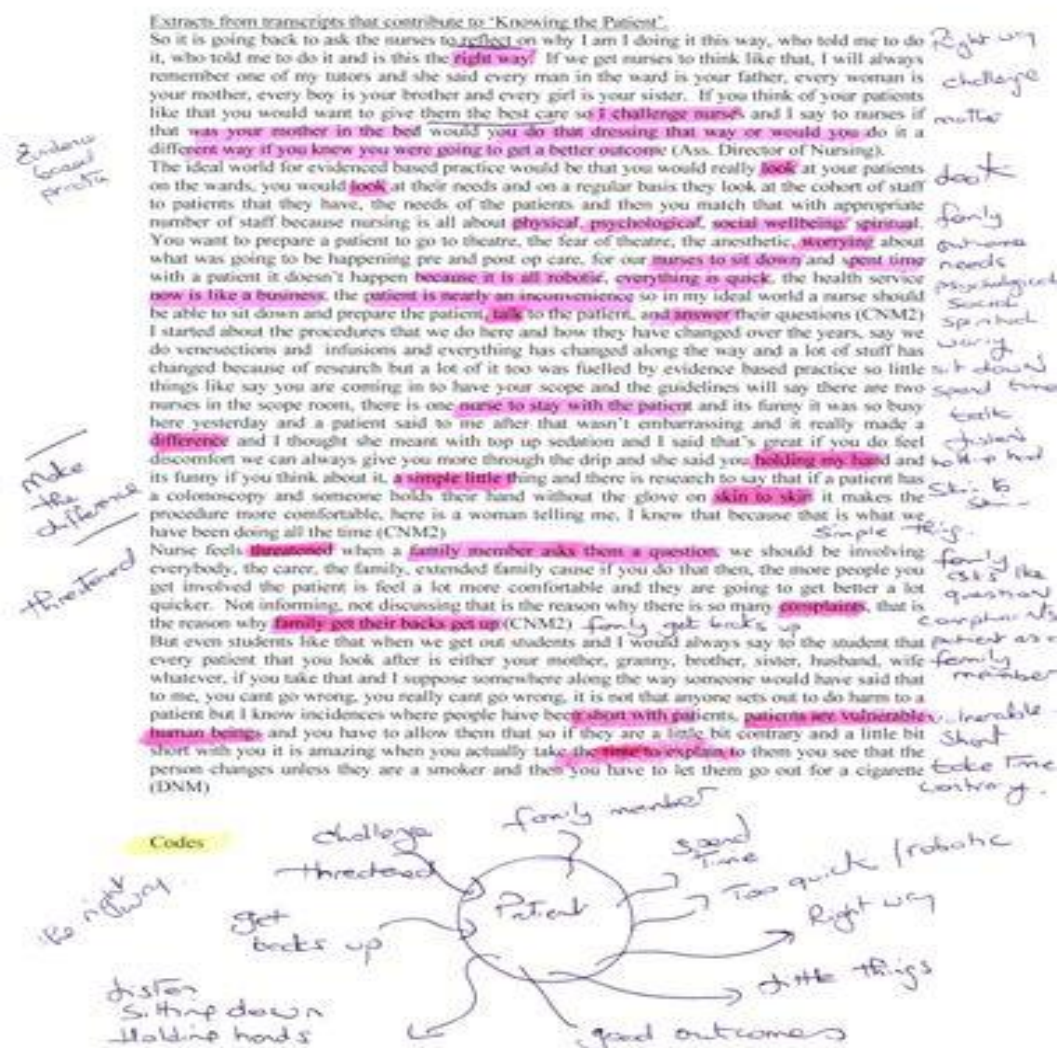 Extracts from transcripts that contribute to 'Knowing the Patient'.
So it is going back to ask the nurses to reflect on why I am I doing it this way, who told me to do
it, who told me to do it and is this the right way. If we get nurses to think like that, I will always
remember one of my tutors and she said every man in the ward is your father, every woman is
your mother, every boy is your brother and every girl is your sister. If you think of your patients
like that you would want to give them the best care so I challenge nurses and I say to nurses if
that was your mother in the bed would you do that dressing that way or would you do it a
different way if you knew you were going to get a better outcome (Ass. Director of Nursing).
The ideal world for evidenced based practice would be that you would really look at your patients
on the wards, you would look at their needs and on a regular basis they look at the cohort of staff
to patients that they have, the needs of the patients and then you match that with appropriate
number of staff because nursing is all about physical, psychological, social wellbeing, spiritual.
You want to prepare a patient to go to theatre, the fear of theatre, the anesthetic, worrying about
what was going to be happening pre and post op care, for our nurses to sit down and spent time
with a patient it doesn't happen because it is all robotic, everything is quick, the health service
now is like a business, the patient is nearly an inconvenience so in my ideal world a nurse should
be able to sit down and prepare the patient, talk to the patient, and answer their questions (CNM2)
I started about the procedures that we do here and how they have changed over the years, say we
do venesections and infusions and everything has changed along the way and a lot of stuff has
changed because of research but a lot of it too was fuelled by evidence based practice so little
things like say you are coming in to have your scope and the guidelines will say there are two
nurses in the scope room, there is one nurse to stay with the patient and its funny it was so busy
here yesterday and a patient said to me after that wasn't embarrassing and it really made a
difference and I thought she meant with top up sedation and I said that's great if you do feel
discomfort we can always give you more through the drip and she said you holding my hand and
its funny if you think about it, a simple little thing and there is research to say that if a patient has
a colonoscopy and someone holds their hand without the glove on skin to skin it makes the
procedure more comfortable, here is a woman telling me, I knew that because that is what we
have been doing all the time (CNM2)
Nurse feels threatened when a family member asks them a question, we should be involving
everybody, the carer, the family, extended family cause if you do that then, the more people you
get involved the patient is feel a lot more comfortable and they are going to get better a lot
quicker. Not informing, not discussing that is the reason why there is so many complaints, that is
the reason why family get their backs get up (CNM2) family get backs up
But even students like that when we get out students and I would always say to the student that
every patient that you look after is either your mother, granny, brother, sister, husband, wife
whatever, if you take that and I suppose somewhere along the way someone would have said that
to me, you cant go wrong, you really cant go wrong, it is not that anyone sets out to do harm to a
patient but I know incidences where people have been short with patients, patients are vulnerable
human beings and you have to allow them that so if they are a little bit contrary and a little bit
short with you it is amazing when you actually take the time to explain to them you see that the
person changes unless they are a smoker and then you have to let them go out for a cigarette
(DNM)
Right way
challenge
mother
look
family
outcome
needs
psychological
Social
spiritual
worry
sit down
spend time
talk
hold hand
Skin to
skin
Simple thing.
family
question
complaints
patient as a
family
member
vulnerable
Short
take time
contrary.
Evidence
based
practice
Make
the
difference
threatened
Codes
challenge
threatened
get
backs up
family member
Spend
Time
Too quick / robotic
Right way
Little things
good outcomes
Patient
Listen
Sitting down
Holding hands